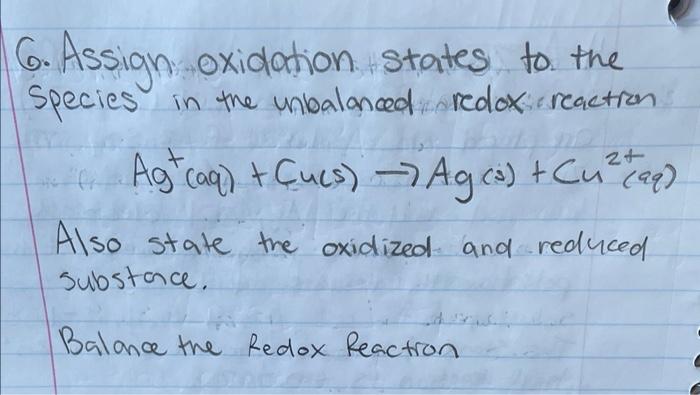 6. Assign oxidation states to the
Species in the unbalanced redox reaction
Ag⁺(aq) + Cu(s) → Ag(s) + Cu²⁺(aq)
Also state the oxidized and reduced
substance.
Balance the Redox Reaction